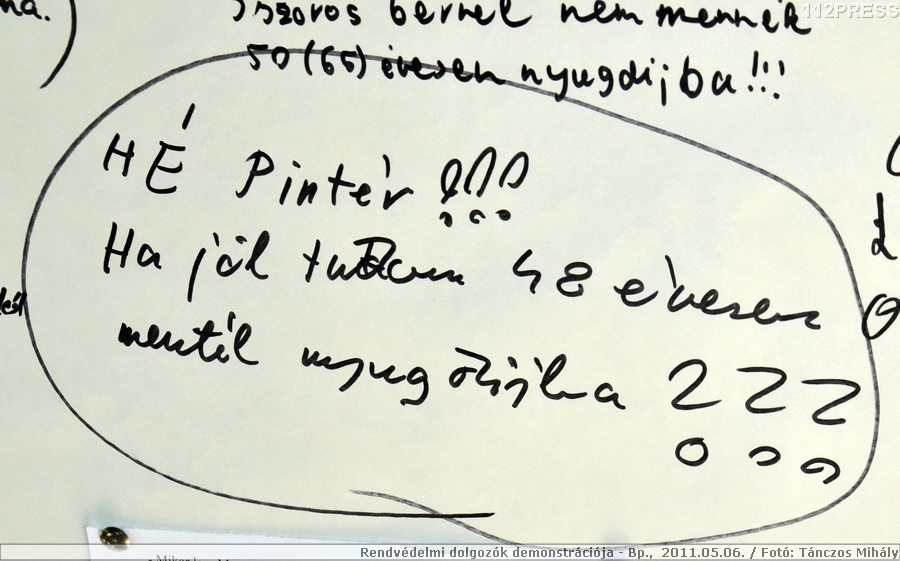 na.)
szoros bérrel nem mennék
112PRESS
50 (65) évesen nyugdijba!!!
HÉ Pintér !!!
Ha jól tudom 48 évesen
mentél nyugdijba ???
Rendvédelmi dolgozók demonstrációja - Bp., 2011.05.06. / Fotó: Tánczos Mihály